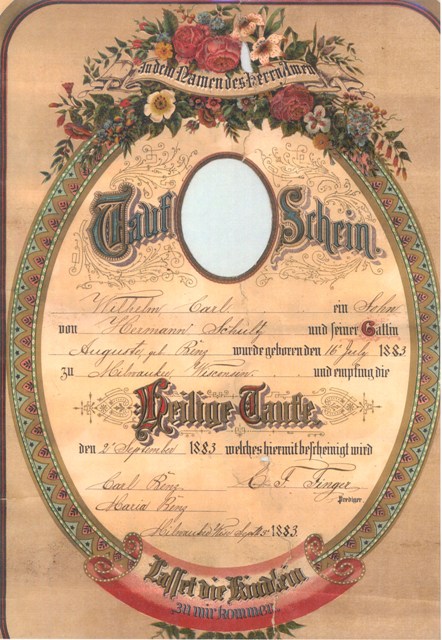 In dem Namen des Herrn Amen
Tauf Schein.
Wilhelm Carl ein Sohn
von Hermann Schulz und seiner Gattin
Augusta, geb Ring wurde geboren den 16 July 1883
zu Milwaukie, Wisconsin. und empfing die
Heilige Taufe.
den 2 September 1883 welches hiermit bescheinigt wird
Carl Ring F. Finger
Prediger.
Maria Ring
Milwaukie Sept 1883.
Lasset die Kindlein
zu mir kommen